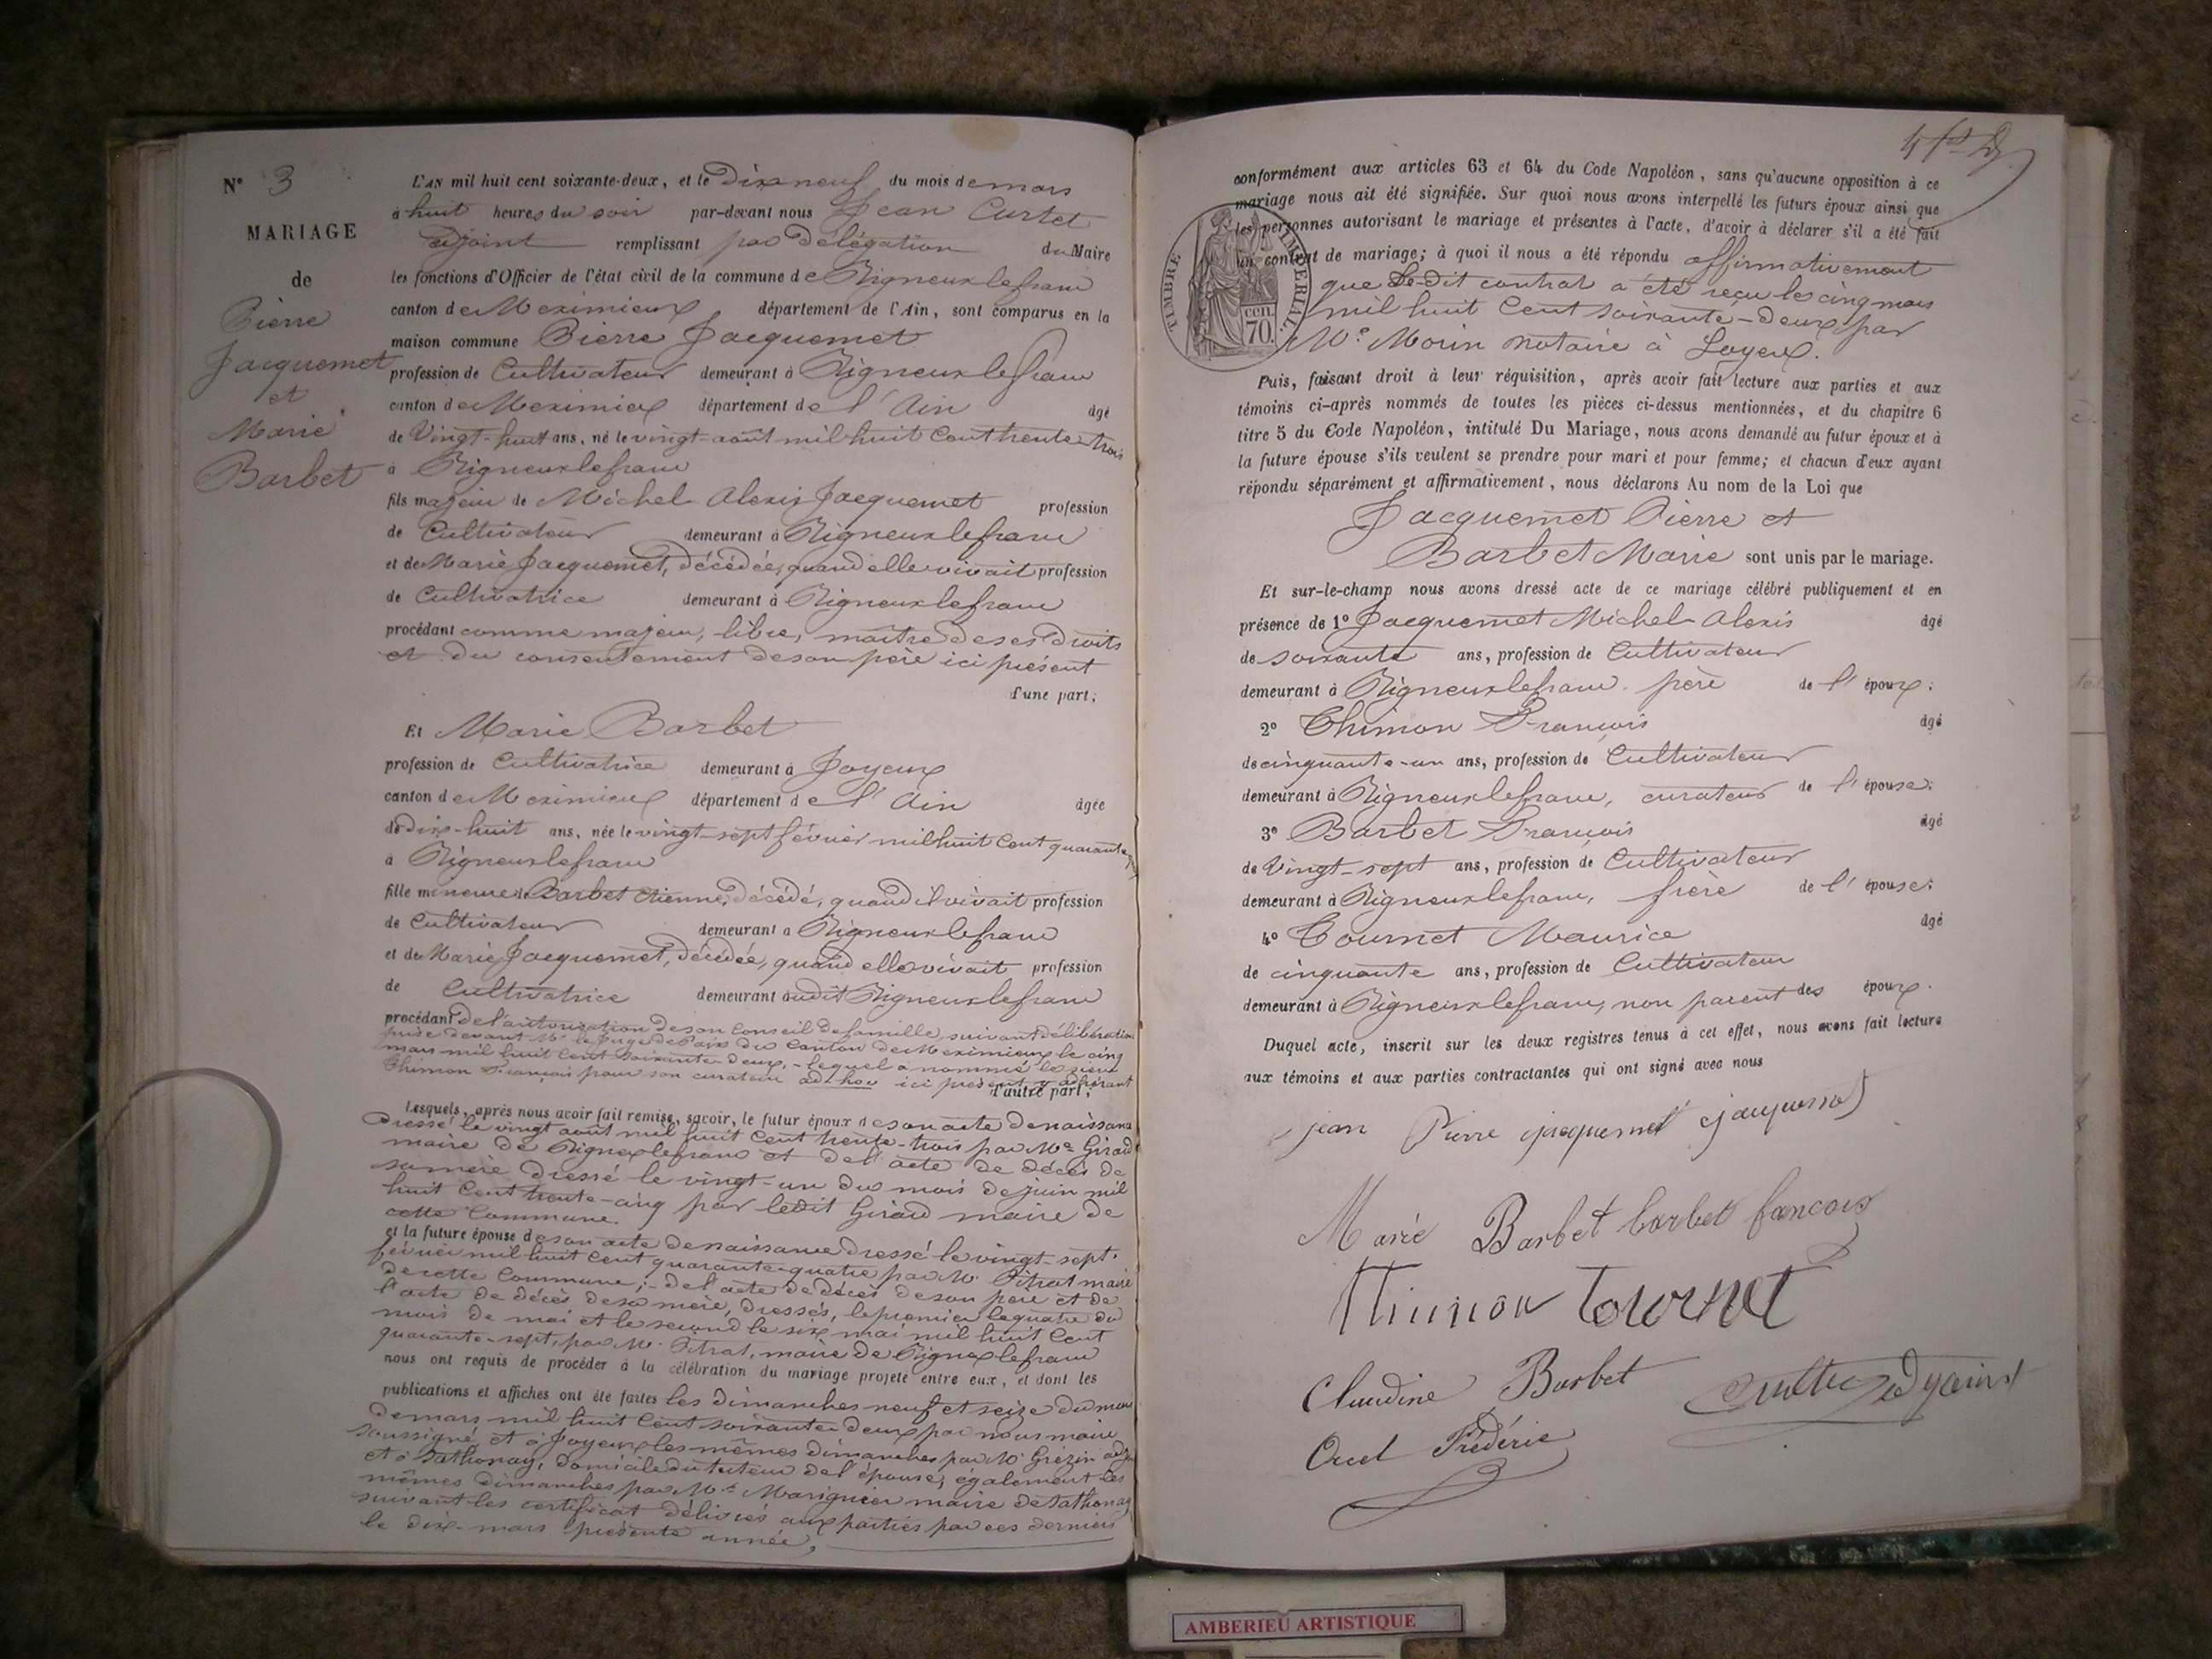 N° 3
MARIAGE
de
Pierre
Jacquemet
et
Marie
Barbet
L'AN mil huit cent soixante-deux, et le Dix neuf du mois de mars
à huit heures du soir par-devant nous Jean Curtet
adjoint remplissant par Délégation du Maire
les fonctions d'Officier de l'état civil de la commune de Rigneux le franc
canton de Meximieux département de l'Ain, sont comparus en la
maison commune Pierre Jacquemet
profession de Cultivateur demeurant à Rigneux le franc
canton de Meximieux département de l'Ain âgé
de Vingt-huit ans, né le vingt-août mil huit Cent trente trois
à Rigneux le franc
fils majeur de Michel Alexis Jacquemet profession
de Cultivateur demeurant à Rigneux le franc
et de Marie Jacquemet, Décédée, quand elle vivait profession
de Cultivatrice demeurant à Rigneux le franc
procédant comme majeur, libre, maître de ses Droits
et du consentement de son père ici présent
d'une part;
Et Marie Barbet
profession de Cultivatrice demeurant à Joyeux
canton de Meximieux département de l'Ain âgée
de Dix-huit ans, née le vingt-sept février mil huit Cent quarante
à Rigneux le franc
fille mineure de Barbet Etienne, Décédé, quand il vivait profession
de Cultivateur demeurant à Rigneux le franc
et de Marie Jacquemet, Décédée, quand elle vivait profession
de Cultivatrice demeurant audit Rigneux le franc
procédant de l'autorisation de son Conseil de famille, suivant délibération
prise devant Mr le Juge de Paix du Canton de Meximieux le cinq
mars mil huit Cent soixante deux, - lequel a nommé le sieur
Thimon François pour son curateur ad-hoc ici présent y adhérant
d'autre part;
Lesquels, après nous avoir fait remise, savoir, le futur époux de son acte de naissance
Dressé le vingt août mil huit Cent trente-trois par Mr Girard
maire de Rigneux le franc et de l'acte de décès de
sa mère dressé le vingt-un du mois de juin mil
huit Cent trente-cinq par ledit Girard maire de
cette Commune.
et la future épouse de son acte de naissance dressé le vingt-sept
février mil huit Cent quarante quatre par Mr Pitrat maire
de cette Commune; - de l'acte de décès de son père et de
l'acte de décès de sa mère, dressés, le premier le quatre du
mois de mai et le second le six mai mil huit Cent
quarante-sept, par Mr Pitrat, maire de Rigneux le franc
nous ont requis de procéder à la célébration du mariage projeté entre eux, et dont les
publications et affiches ont été faites les dimanches neuf et seize du mois
de mars mil huit Cent soixante deux par nous maire
soussigné, et à Joyeux les mêmes dimanches par Mr Grézin adjt
et à Sathonay, domicile du tuteur de l'épouse, également les
mêmes dimanches par Mr Marignier maire de Sathonay
suivant les certificat délivrés aux parties par ces derniers
le dix-mars présente année,
conformément aux articles 63 et 64 du Code Napoléon, sans qu'aucune opposition à ce
mariage nous ait été signifiée. Sur quoi nous avons interpellé les futurs époux ainsi que
les personnes autorisant le mariage et présentes à l'acte, d'avoir à déclarer s'il a été fait
un contrat de mariage; à quoi il nous a été répondu affirmativement
que Ledit contrat a été reçu le cinq mars
mil huit Cent soixante-deux par
Me Morin notaire à Loyeux.
TIMBRE IMPERIAL.
cen.
70.
Puis, faisant droit à leur réquisition, après avoir fait lecture aux parties et aux
témoins ci-après nommés de toutes les pièces ci-dessus mentionnées, et du chapitre 6
titre 5 du Code Napoléon, intitulé Du Mariage, nous avons demandé au futur époux et à
la future épouse s'ils veulent se prendre pour mari et pour femme; et chacun d'eux ayant
répondu séparément et affirmativement, nous déclarons Au nom de la Loi que
Jacquemet Pierre et
Barbet Marie sont unis par le mariage.
Et sur-le-champ nous avons dressé acte de ce mariage célébré publiquement et en
présence de 1° Jacquemet Michel Alexis âgé
de soixante ans, profession de Cultivateur
demeurant à Rigneux le franc. père de l'époux;
2° Thimon François âgé
de cinquante-un ans, profession de Cultivateur
demeurant à Rigneux le franc, curateur de l'épouse;
3° Barbet François âgé
de Vingt-sept ans, profession de Cultivateur
demeurant à Rigneux le franc, frère de l'épouse;
4° Tournet Maurice âgé
de cinquante ans, profession de Cultivateur
demeurant à Rigneux le franc, non parent des époux.
Duquel acte, inscrit sur les deux registres tenus à cet effet, nous avons fait lecture
aux témoins et aux parties contractantes qui ont signé avec nous
jean Pierre jacquemet jacquemet
Marie Barbet barbet francois
Thimon Tournet
Claudine Barbet
Frédéric
AMBERIEU ARTISTIQUE